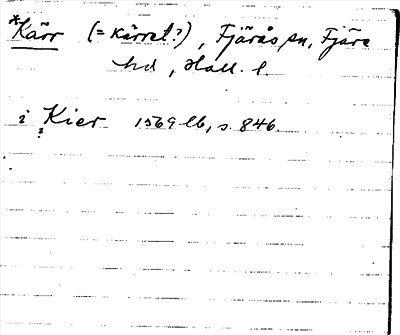 *Kärr (= Kärret?), Fjärås sn, Fjäre
hd, Hall. l.
i Kier 1569 lb, s. 846.